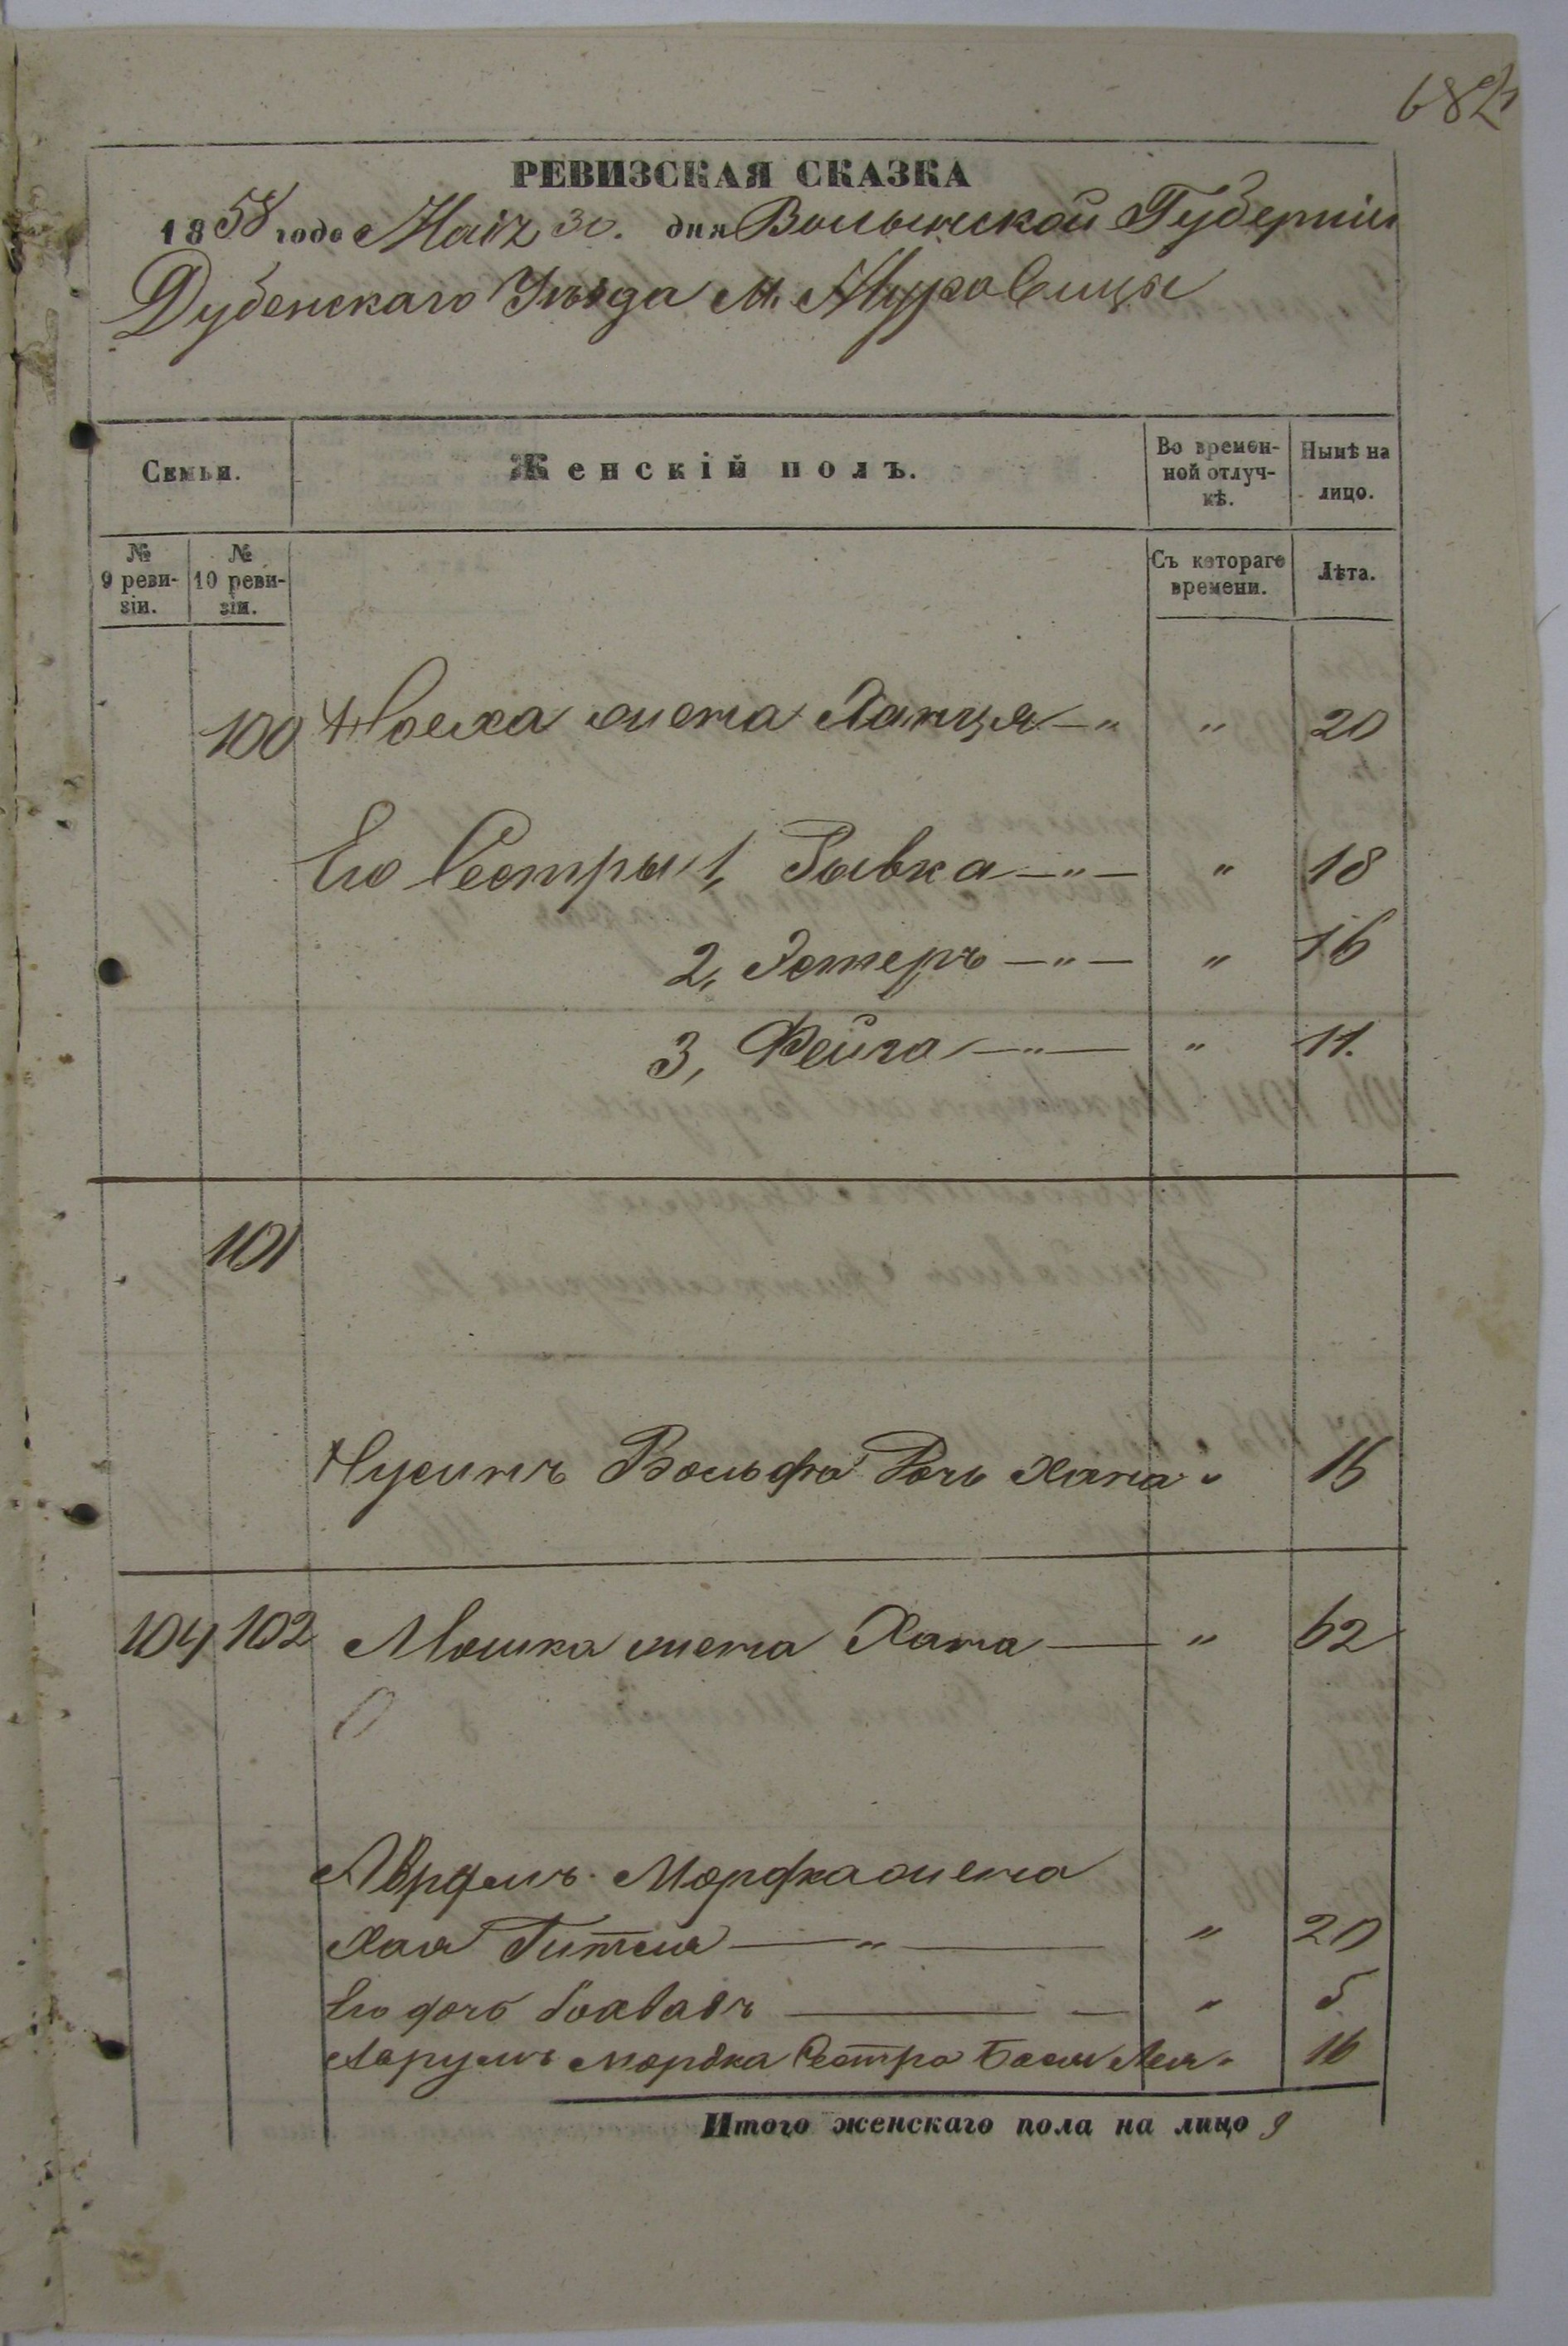 682
РЕВИЗСКАЯ СКАЗКА
1858 года Маія 30. дня Волынской Губерніи
Дубенскаго Уѣзда М. Муравицы
Семьи.
Женскій полъ.
Во времен-
ной отлуч-
кѣ.
Нынѣ на
лицо.
№
9 реви-
зіи.
№
10 реви-
зіи.
Съ котораго
времени.
Лѣта.
100 жена Ханця — " " 20
Его Сестры 1, Рывка — " — " 18
2, Эстеръ — " — " 16
3, Фейга — " — " 11.
101
Нусимъ Вольфа Дочь Хана " 15
104 102 Мошка жена Хана — " 62
Аврумъ Мордка жена
Хая Гитля — " — " 20
Его дочь — " 5
Аврумъ Мордка Сестра Бася Лея " 16
Итого женскаго пола на лицо 9